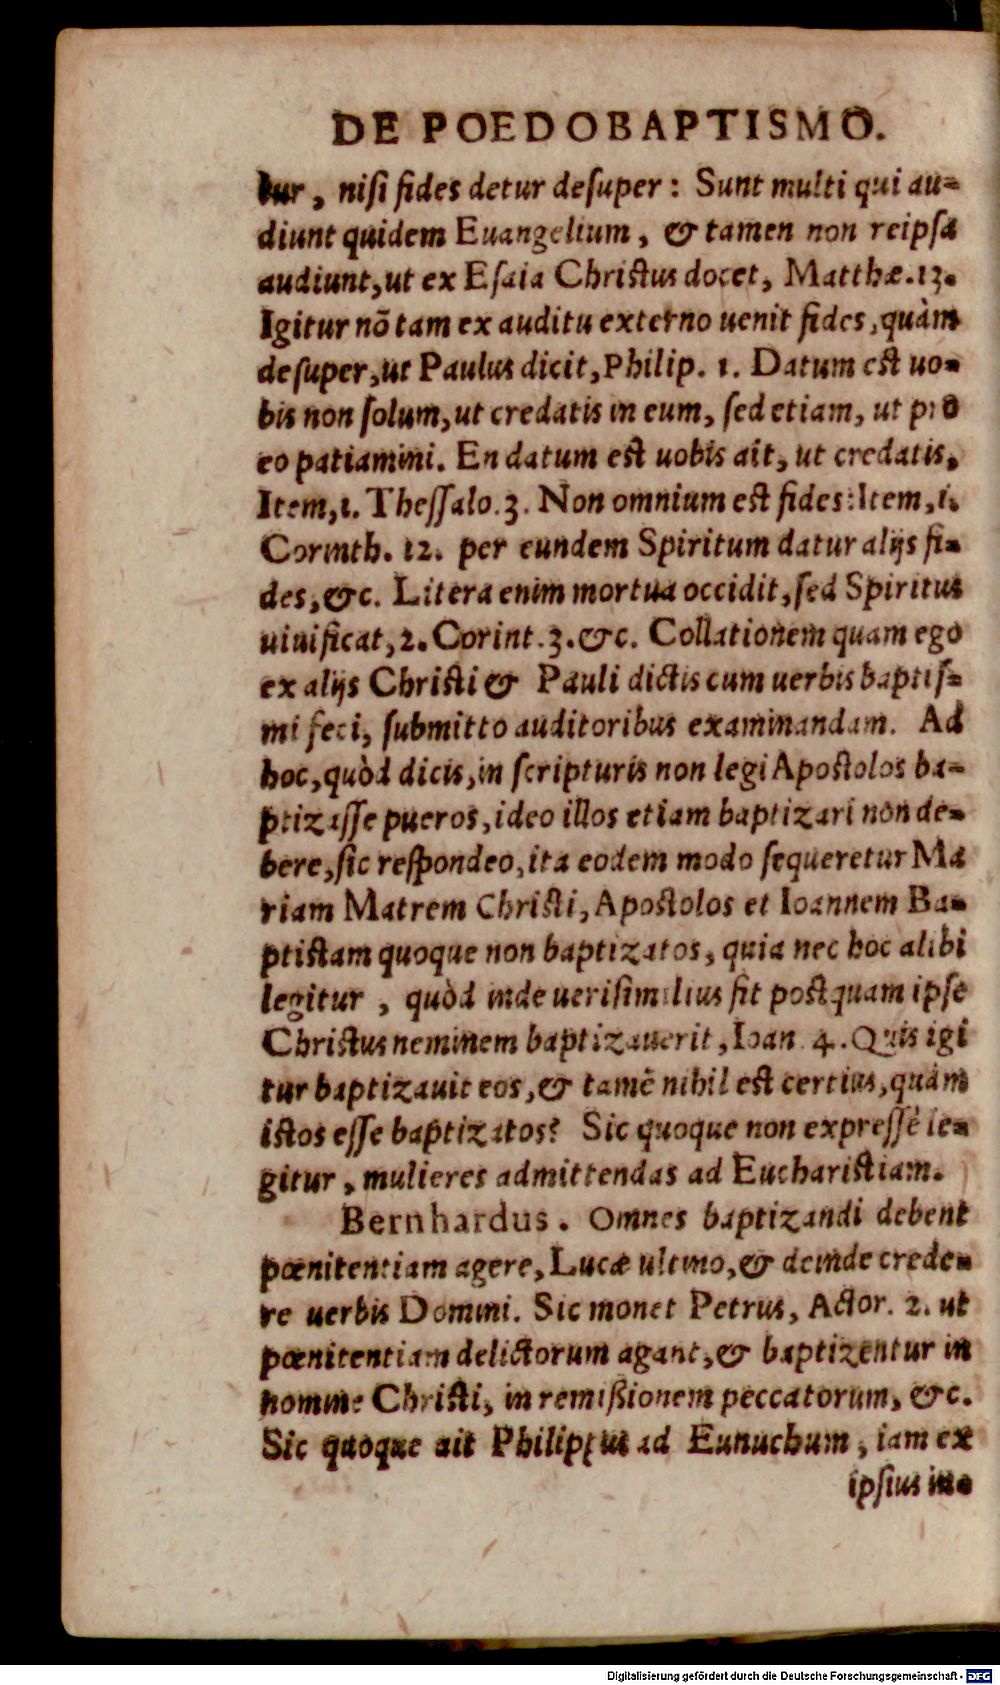 DE POEDOBAPTISMO.
tur, nisi fides detur desuper: Sunt multi qui au-
diunt quidem Euangelium, & tamen non reipsa
audiunt, ut ex Esaia Christus docet, Matthæ. 13.
Igitur nō tam ex auditu externo uenit fides, quàm
desuper, ut Paulus dicit, Philip. 1. Datum est uo-
bis non solum, ut credatis in eum, sed etiam, ut pro
eo patiamini. En datum est uobis ait, ut credatis,
Item, 1. Thessalo. 3. Non omnium est fides: Item, 1.
Corinth. 12. per eundem Spiritum datur alijs fi-
des, &c. Litera enim mortua occidit, sed Spiritus
uiuificat, 2. Corint. 3. &c. Collationem quam ego
ex alijs Christi & Pauli dictis cum uerbis baptis-
mi feci, submitto auditoribus examinandam. Ad
hoc, quòd dicis, in scripturis non legi Apostolos ba-
ptizasse pueros, ideo illos etiam baptizari non de-
bere, sic respondeo, ita eodem modo sequeretur Ma
riam Matrem Christi, Apostolos et Ioannem Ba-
ptistam quoque non baptizatos, quia nec hoc alibi
legitur, quòd inde uerisimilius fit postquam ipse
Christus neminem baptizauerit, Ioan. 4. Quis igi
tur baptizauit eos, & tamē nihil est certius, quàm
istos esse baptizatos? Sic quoque non expressè le-
gitur, mulieres admittendas ad Eucharistiam.
Bernhardus. Omnes baptizandi debent
pœnitentiam agere, Lucæ ultimo, & deinde crede-
re uerbis Domini. Sic monet Petrus, Actor. 2. ut
pœnitentiam delictorum agant, & baptizentur in
nomine Christi, in remißionem peccatorum, &c.
Sic quoque ait Philippus ad Eunuchum, iam ex
ipsius in-
Digitalisierung gefördert durch die Deutsche Forschungsgemeinschaft - DFG